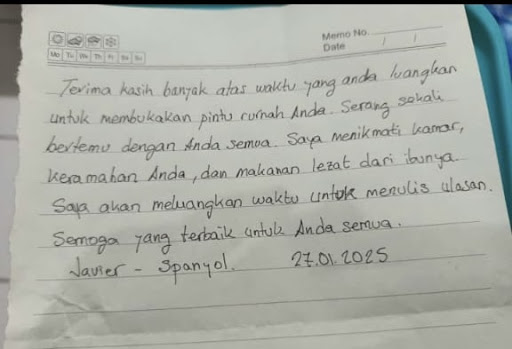 Memo No.
Date / /
Mo Tu We Th Fr Sa Su
Terima kasih banyak atas waktu yang anda luangkan
untuk membukakan pintu rumah Anda. Serang sekali
bertemu dengan Anda semua. Saya menikmati kamar,
keramahan Anda, dan makanan lezat dari ibunya.
Saya akan meluangkan waktu untuk menulis ulasan.
Semoga yang terbaik untuk Anda semua.
Javier - Spanyol. 27.01.2025